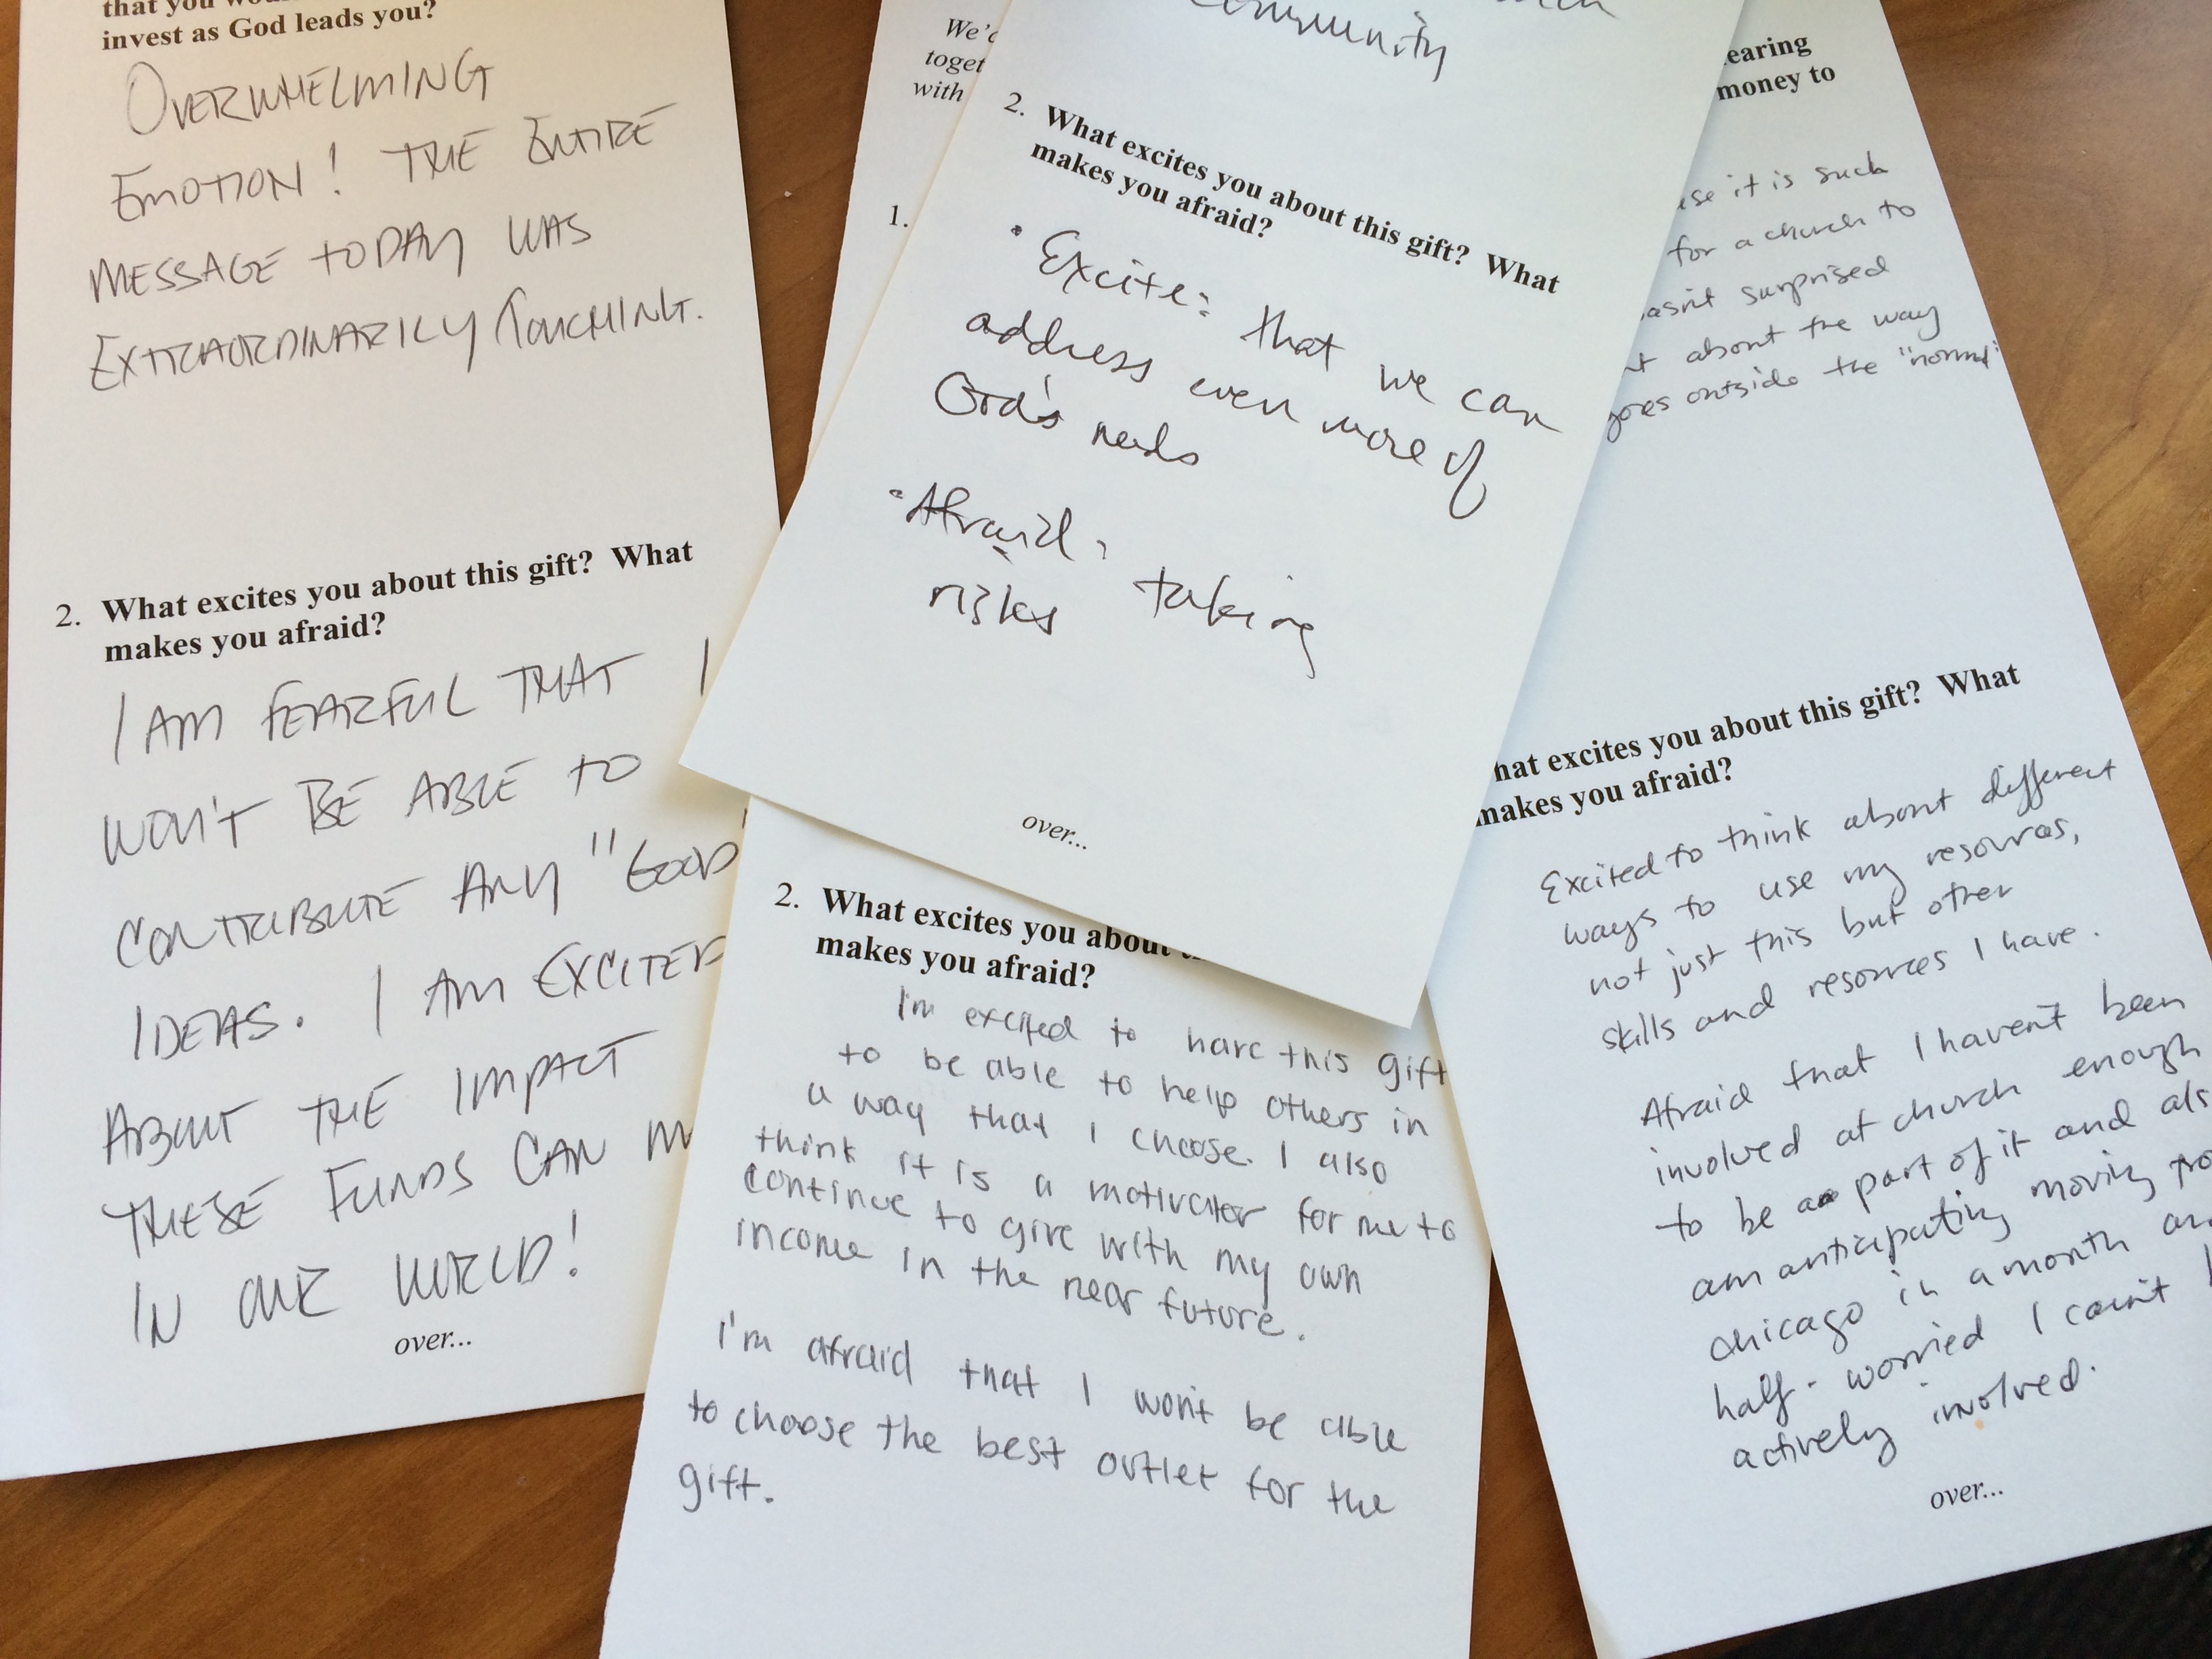 that you
invest as God leads you?
OVERWHELMING
EMOTION! THE ENTIRE
MESSAGE TODAY WAS
EXTRAORDINARILY TOUCHING.
2. What excites you about this gift? What
makes you afraid?
I AM FEARFUL THAT I
WON'T BE ABLE TO
CONTRIBUTE ANY "GOOD
IDEAS. I AM EXCITED
ABOUT THE IMPACT
THESE FUNDS CAN M
IN OUR WORLD!
over...
We'd
toget
with
1.
community
2. What excites you about this gift? What
makes you afraid?
• Excite: that we can
address even more of
God's needs
• Afraid: taking
risks
over...
2. What excites you about
makes you afraid?
I'm excited to have this gift
to be able to help others in
a way that I choose. I also
think it is a motivator for me to
continue to give with my own
income in the near future.
I'm afraid that I won't be able
to choose the best outlet for the
gift.
earing
money to
it is such
for a church to
asn't surprised
about the way
goes outside the "normal"
hat excites you about this gift? What
makes you afraid?
Excited to think about different
ways to use my resources,
not just this but other
skills and resources I have.
Afraid that I haven't been
involved at church enough
to be a part of it and als
am anticipating moving fro
chicago in a month an
half - worried I can't
actively involved.
over...